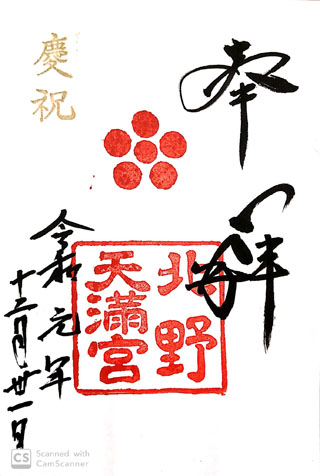 奉拝
北野
天満宮
慶祝
令和元年
十二月卅一日
CS Scanned with
CamScanner